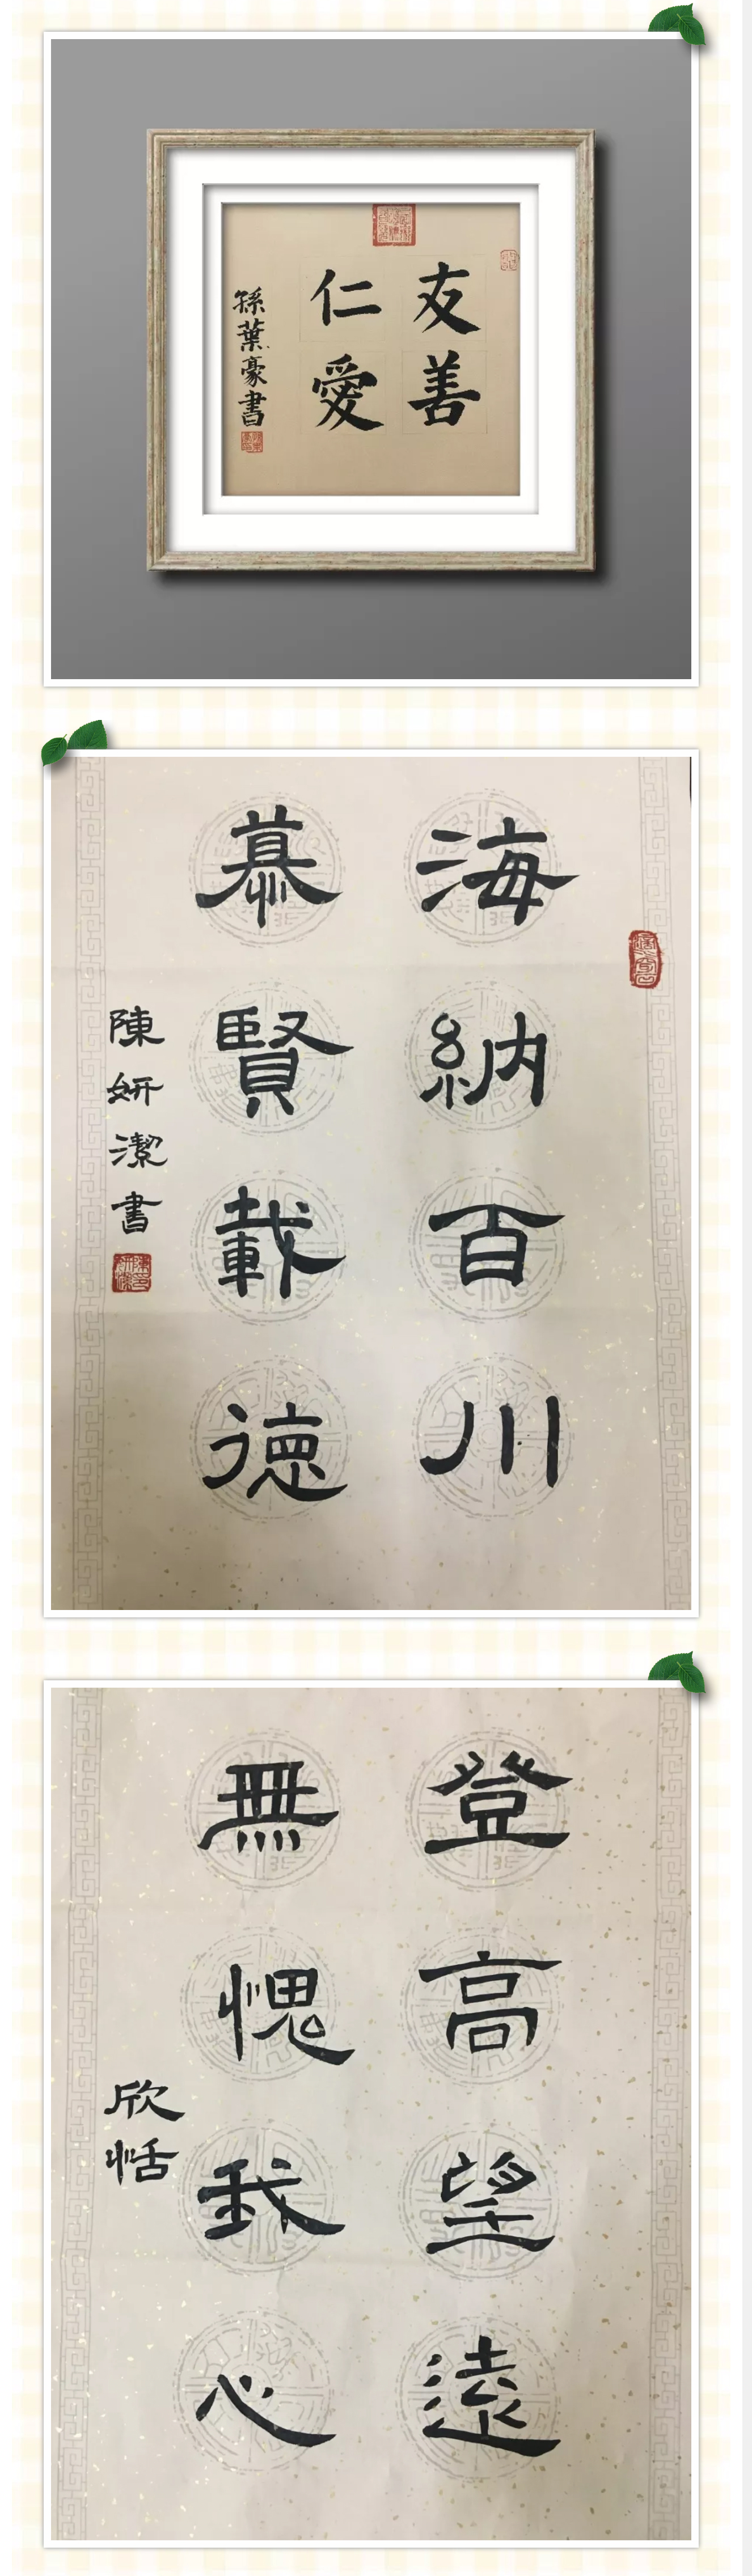 友善
仁愛
孫葉豪書
海納百川
慕賢載德
陳妍潔書
登高望遠
無愧我心
欣恬